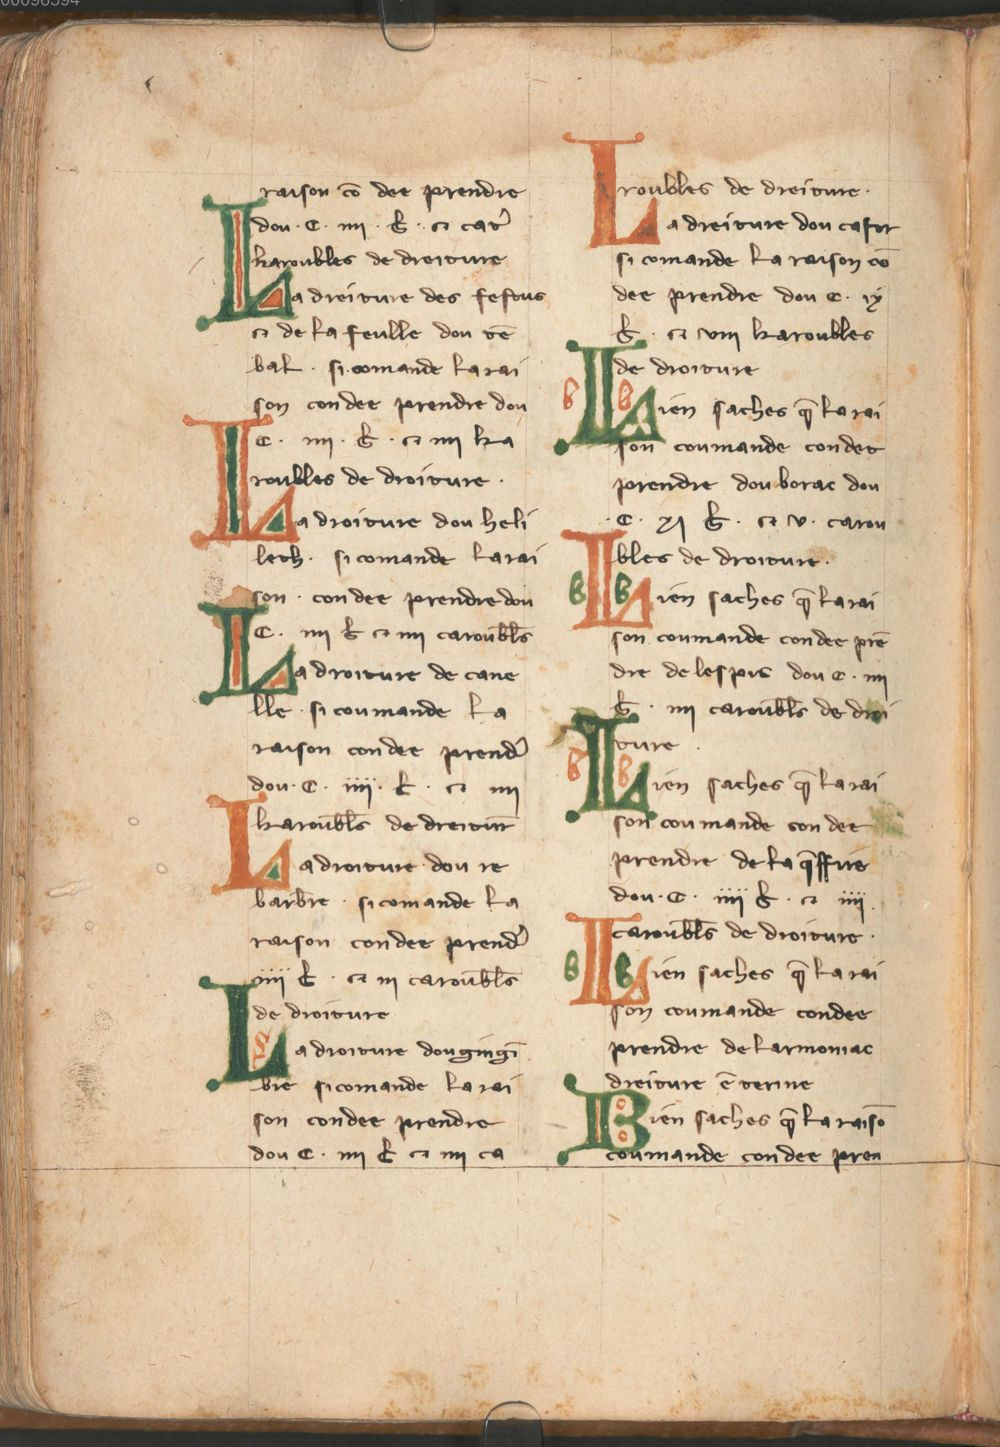 raison cō dee prendre
dou · C · iiii · ₰ · ⁊ cat᷑
karoubles de droiture
La dreiture des festus
⁊ de la feulle dou tē
bal · si comande la rai
son con dee prendre dou
C · iiii · ₰ · ⁊ iiii ka
roubles de droiture ·
La droiture dou heli
leth · si comande la rai
son · con dee prendre dou
C · iiii ₰ ⁊ iiii caroub̄ls
La droiture de cane
lle · si coumande la
raison con dee prend᷑
dou · C · iiii · ₰ · ⁊ iiii
karoub̄ls de dreitur̄
La droiture dou re
barbre · si comande la
raison con dee prend᷑
iiii ₰ · ⁊ iii caroub̄ls
de droiture
La droiture dou gingī
bre si comande la rai
son con dee prendre
dou C · iiii ₰ ⁊ iiii ca
roubles de dreiture ·
La dreiture dou
si comande la raison cō
dee prendre dou C · ix
₰ · ⁊ viii karoubles
de droiture
b Lbien saches q̄ la rai
son coumande con det
prendre dou borac dou
· C · xi ₰ · ⁊ v · carou
bles de droiture ·
b Lbien saches q̄ la rai
son coumande con dee prē
dre de lespic dou C · iiii
₰ · iiii caroub̄ls de droi
ture ·
b Lbien saches q̄ la rai
son coumande con dee
prendre de la
dou · C · iiii ₰ · ⁊ iiii ·
caroub̄ls de droiture ·
b Lbien saches q̄ la rai
son coumande con dee
prendre de larmoniac
dreiture ē terme
Bien saches q̄ la raisō
coumande con dee pren